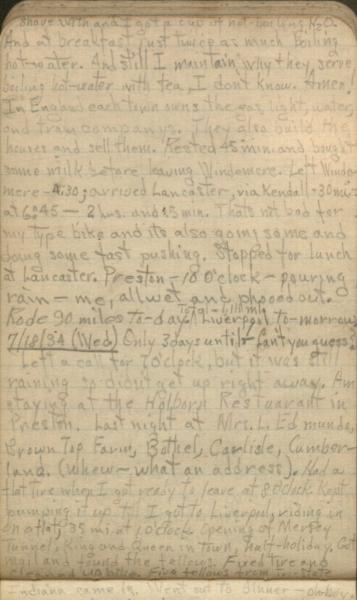 shave with and I got a cup of hot-boiling H2O.
And at breakfast, just twice as much boiling
hot-water. And still I maintain, why they serve
boiling hot-water with tea, I don't know. Amen!
In England each town owns the gas, light, water,
and tram companys. They also build the
houses and sell them. Rested 45 min. and bought
some milk before leaving Windemere. Left Winde-
mere - 4:30; arrived Lancaster, via Kendall - 30 mi.
at 6:45 - 2 hrs. and 15 min. Thats not bad for
my type bike and its also going some and
doing some fast pushing. Stopped for lunch
at Lancaster. Preston - 10 o'clock - pouring
rain - me, all wet and phooed out.
Rode 90 miles to-day. Liverpool to-morrow
7/18/34 (Wed) Only 3 days until - can't you guess?
Left a call for 7 o'clock, but it was still
raining so didn't get up right away. Am
staying at the Holborn Restuarant in
Preston. Last night at Mrs. L. Edmunds,
Crown Top Farm, Bothel, Carlisle, Cumber-
land. (whew - what an address). Had a
flat tire when I got ready to leave at 8 o'clock. Kept
pumping it up till I got to Liverpool, riding in
on a flat, 35 mi. at 1 o'clock. Opening of Mersey
Tunnel, King and Queen in town, half-holiday. Got
mail and found the fellows. Fixed tire and
cleaned up bike. Five fellows from
Indiana came in. Went out to dinner -